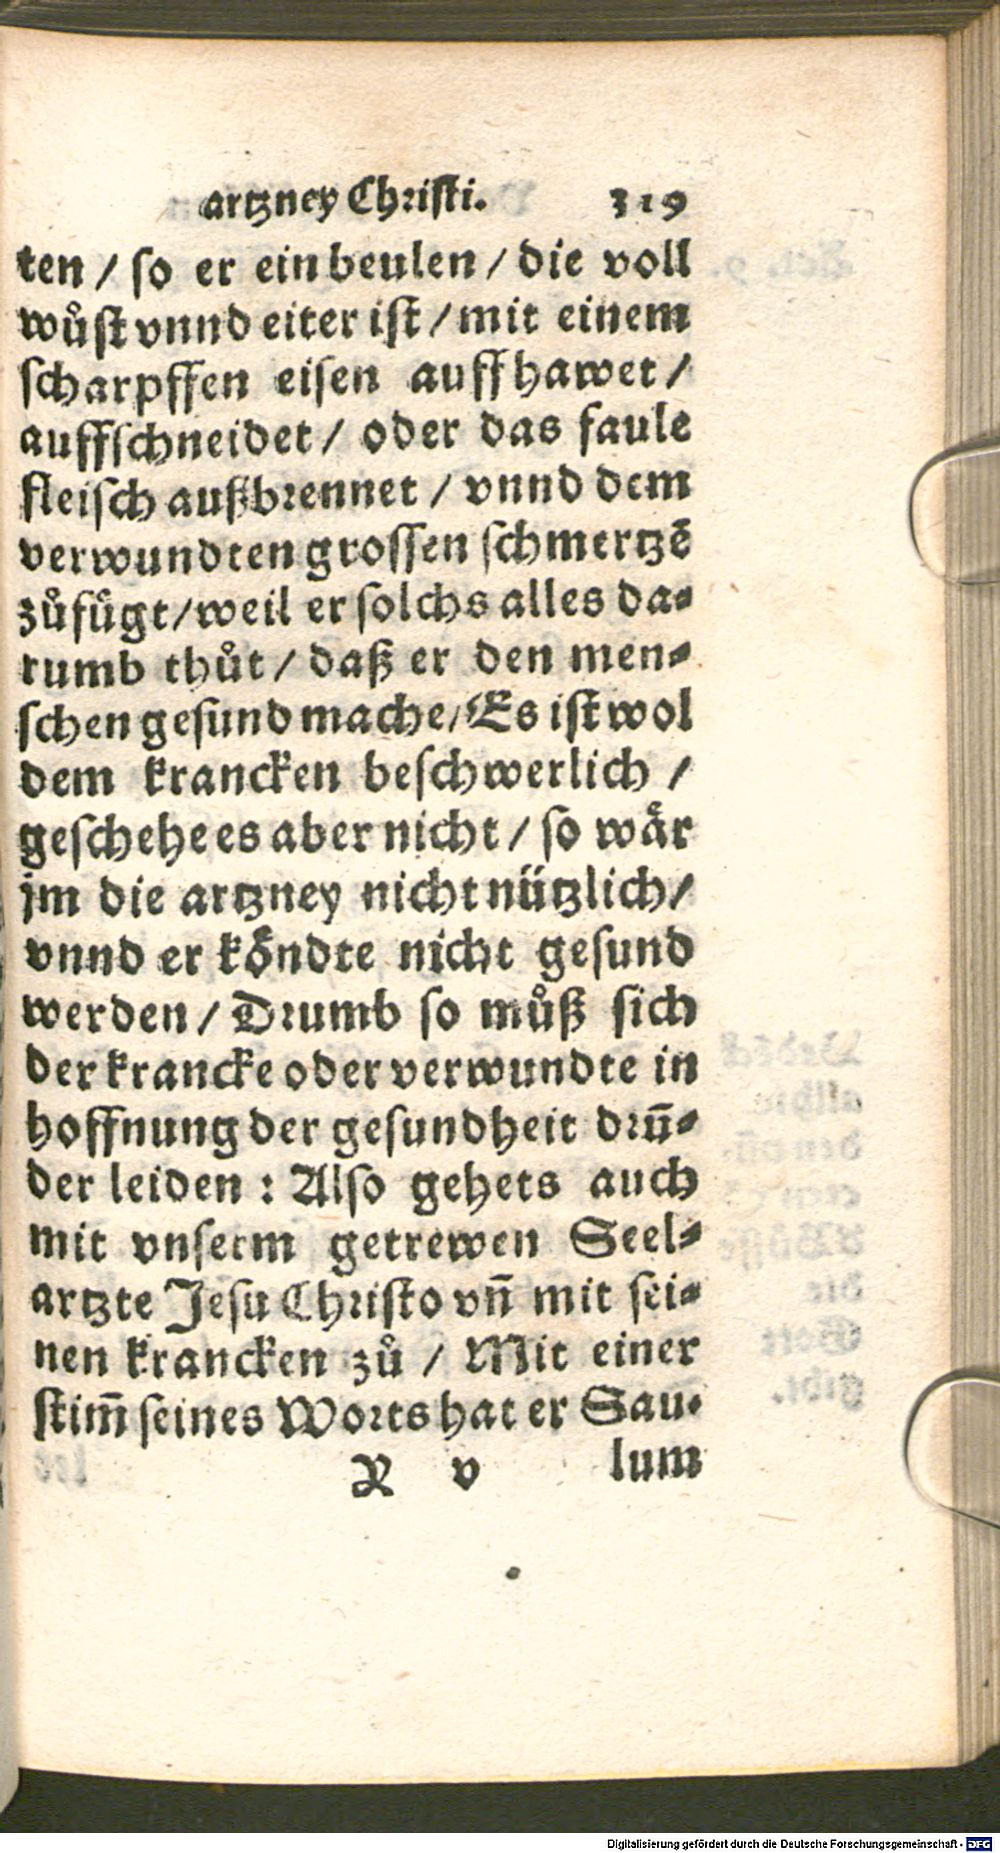 artzney Christi. 319
ten / so er ein beulen / die voll
wůſt vnnd eiter iſt / mit einem
ſcharpffen eiſen auff hawet /
auffſchneidet / oder das faule
fleiſch außbrennet / vnnd dem
verwundten groſſen ſchmertzē
zůfůgt / weil er ſolchs alles da⸗
rumb thůt / daß er den men⸗
ſchen geſund mache / Es iſt wol
dem krancken beſchwerlich /
geſchehe es aber nicht / ſo wåꝛ
jm die artzney nicht nützlich /
vnnd er kőndte nicht geſund
werden / Drumb ſo můß ſich
der krancke oder verwundte in
hoffnung der geſundheit drun̄⸗
der leiden : Alſo gehets auch
mit vnſerm getrewen Seel⸗
artzte Jeſu Chriſto vn̄ mit ſei⸗
nen krancken zů / Mit einer
ſtim̄ ſeines Worts hat er Sau⸗
R v lum
Digitalisierung gefördert durch die Deutsche Forschungsgemeinschaft - DFG